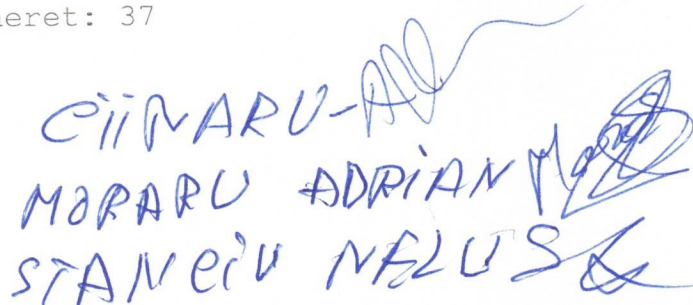 eret: 37
CiiNARU-
MORARU ADRiAN
STANCiU NELUS